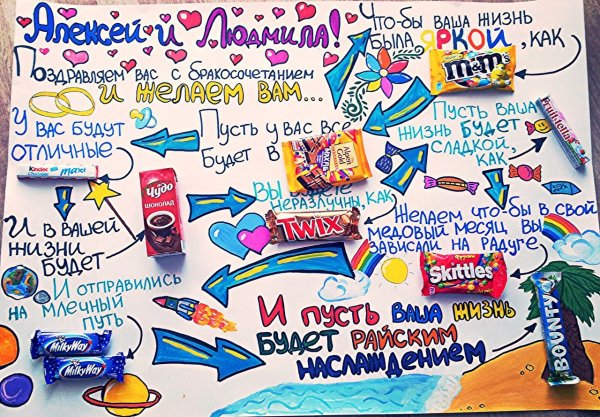 Алексей и Людмила!
Поздравляем вас с бракосочетанием
и желаем вам...
Что-бы ваша жизнь
была яркой, как
m&m's
Пусть ваша
жизнь будет
сладкой,
как
Fruittella
Пусть у вас все
будет в
Alpen Gold
У вас будут
отличные
Kinder
Chocolate
maxi
И в вашей
жизни
будет
Чудо
ШОКОЛАД
Вы будете
неразлучны, как
TWIX
Желаем что-бы в свой
медовый месяц вы
зависали на радуге
Skittles
И отправились
на млечный
путь
MilkyWay
MilkyWay
И пусть ваша жизнь
будет райским
наслаждением
BOUNTY